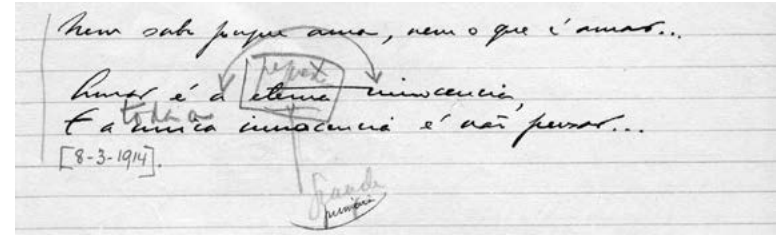 Nem sabe porque ama, nem o que é amar...
repete
Amar é a eterna innocencia,
toda a
E a unica innocencia é não pensar...
[8-3-1914].
Grande
primeira